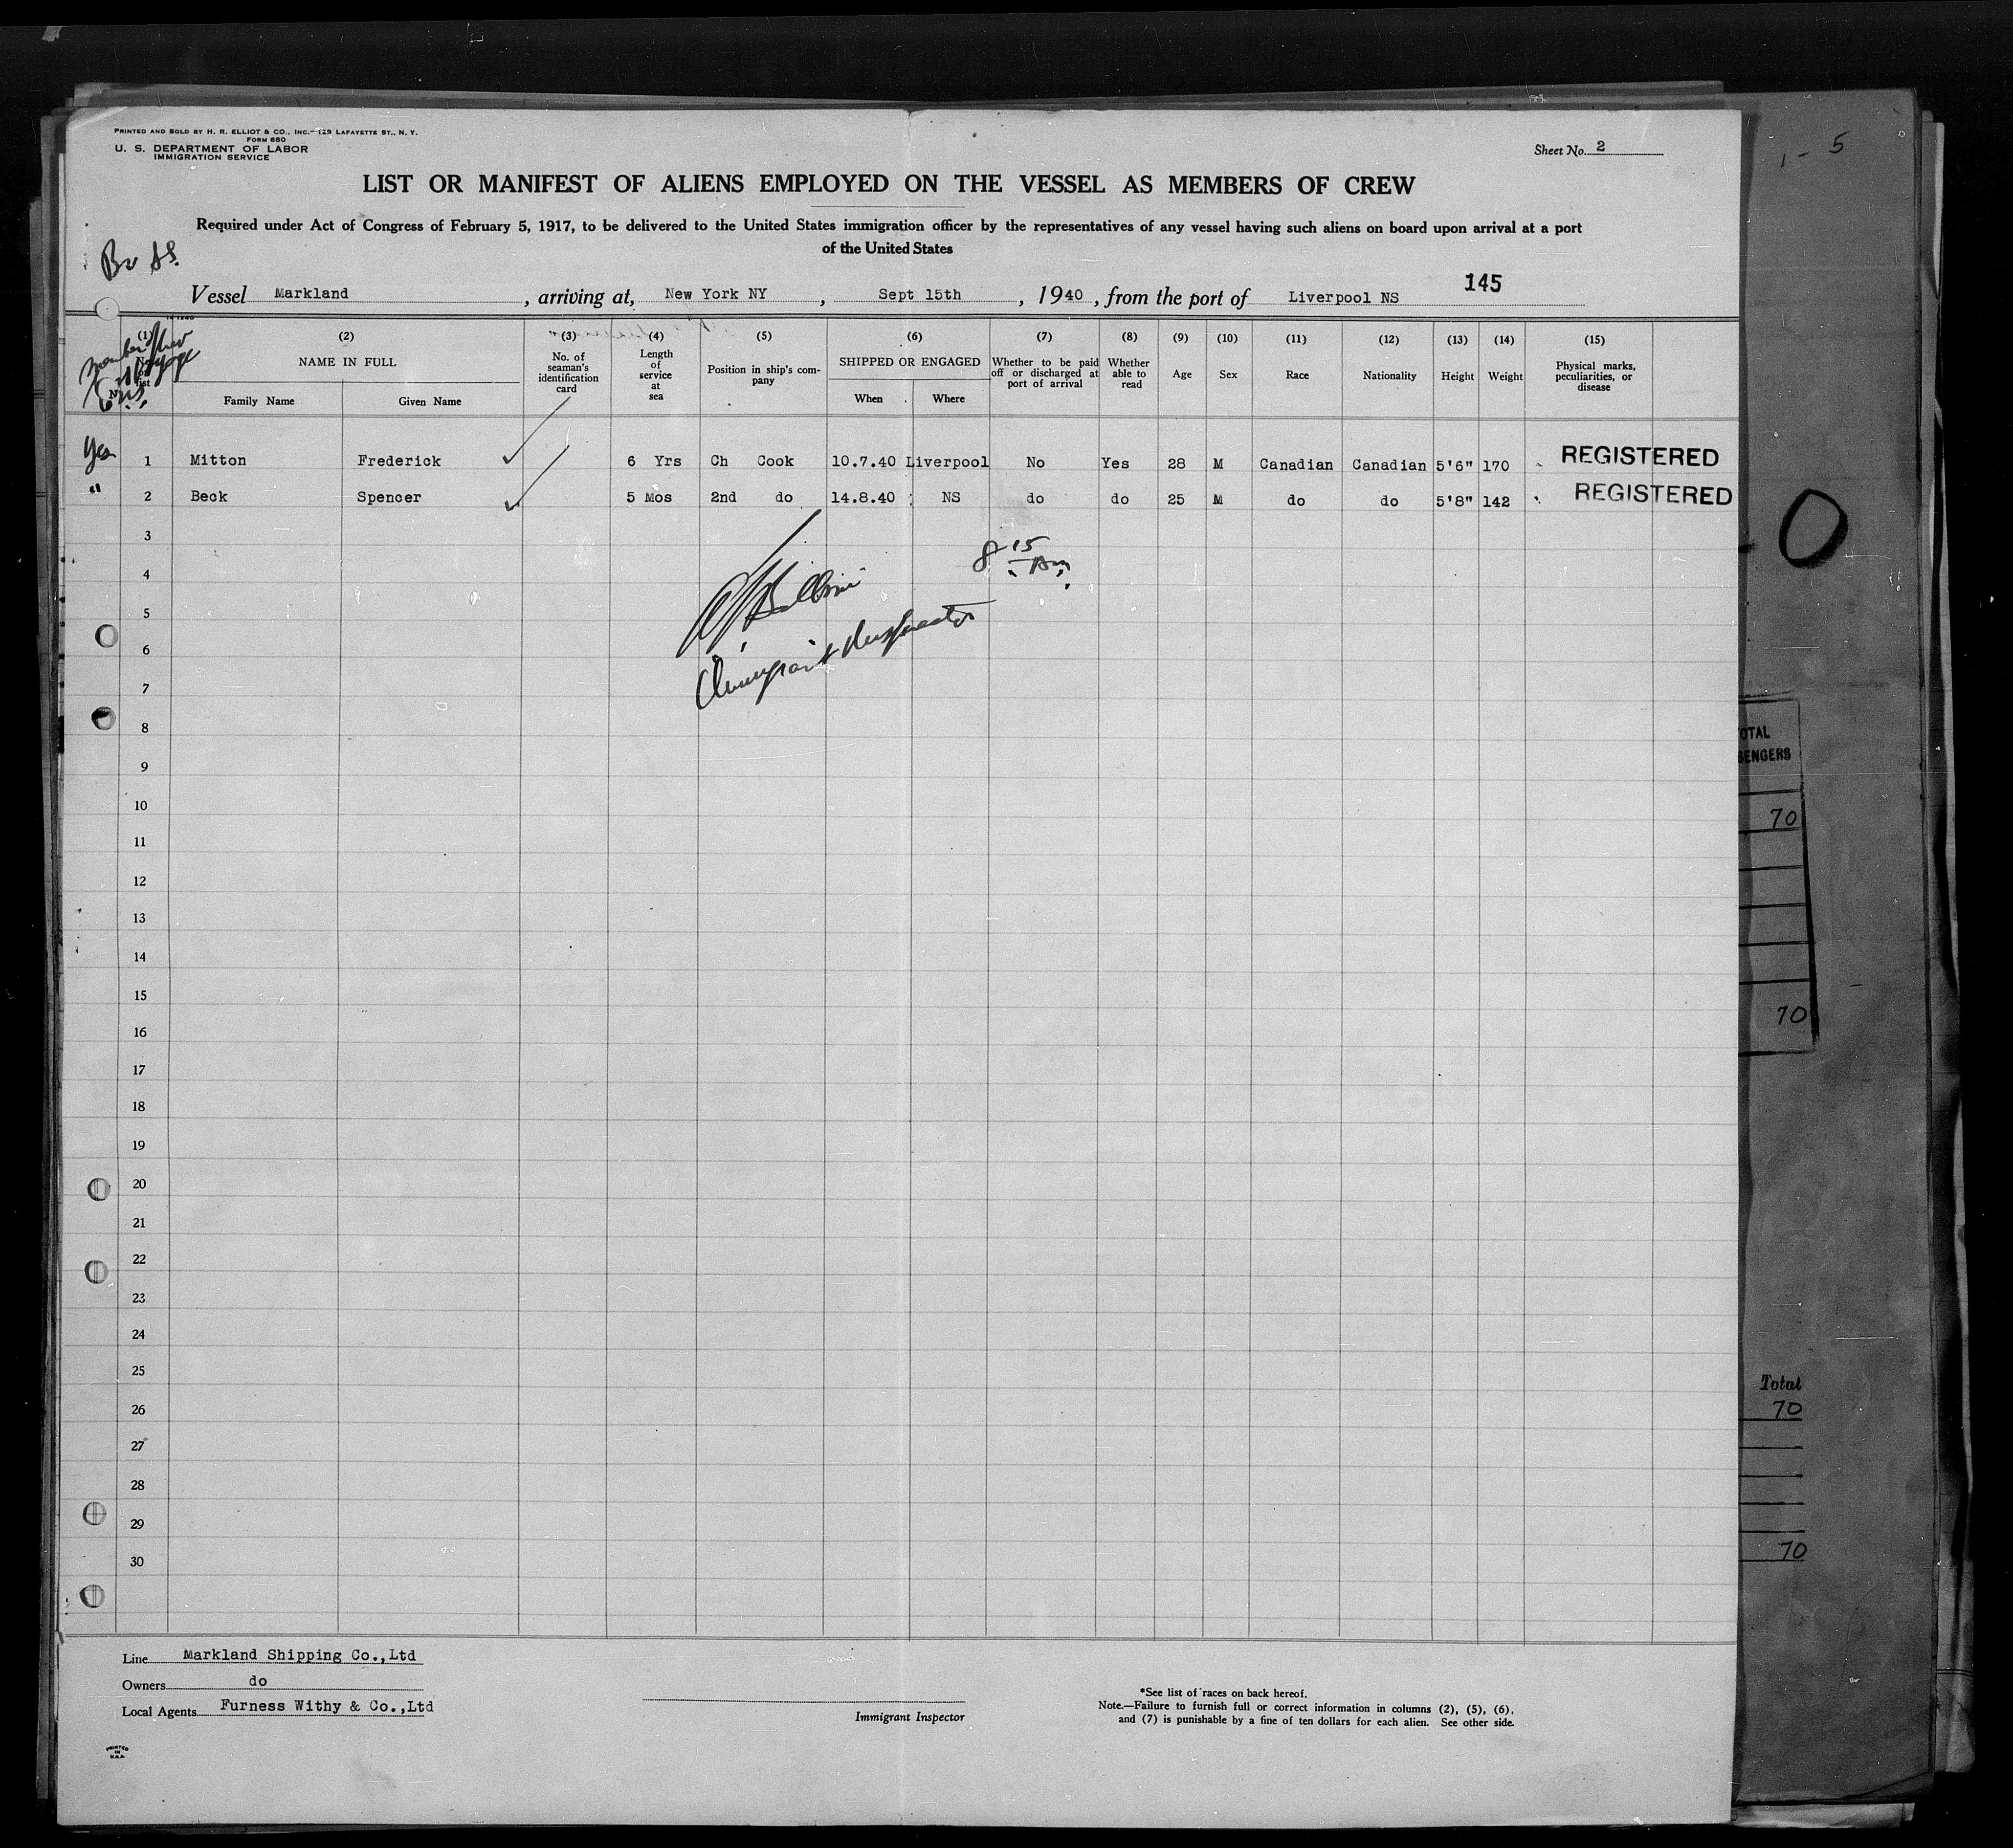 PRINTED AND SOLD BY H. R. ELLIOT & CO., INC.—129 LAFAYETTE ST., N. Y.
FORM 680
U. S. DEPARTMENT OF LABOR
IMMIGRATION SERVICE
Sheet No. 2
1 - 5
LIST OR MANIFEST OF ALIENS EMPLOYED ON THE VESSEL AS MEMBERS OF CREW
Required under Act of Congress of February 5, 1917, to be delivered to the United States immigration officer by the representatives of any vessel having such aliens on board upon arrival at a port
of the United States
145
Vessel Markland, arriving at, New York NY, Sept 15th, 1940, from the port of Liverpool NS
(1) (2) (3) (4) (5) (6) (7) (8) (9) (10) (11) (12) (13) (14) (15)
NAME IN FULL
Family Name Given Name
No. of seaman's identification card
Length of service at sea
Position in ship's company
SHIPPED OR ENGAGED
When Where
Whether to be paid off or discharged at port of arrival
Whether able to read
Age Sex Race Nationality Height Weight
Physical marks, peculiarities, or disease
Yes 1 Mitton Frederick 6 Yrs Ch Cook 10.7.40 Liverpool No Yes 28 M Canadian Canadian 5'6" 170 REGISTERED
" 2 Beck Spencer 5 Mos 2nd do 14.8.40 NS do do 25 M do do 5'8" 142 REGISTERED
3
8 15 Am
4
5
Immigrant Inspector
6
7
8
9
10
11
12
13
14
15
16
17
18
19
20
21
22
23
24
25
26
27
28
29
30
Line Markland Shipping Co.,Ltd
Owners do
Local Agents Furness Withy & Co.,Ltd
Immigrant Inspector
*See list of races on back hereof.
Note.—Failure to furnish full or correct information in columns (2), (5), (6),
and (7) is punishable by a fine of ten dollars for each alien. See other side.
PRINTED
IN
U.S.A.
0
70
70
Total
70
70